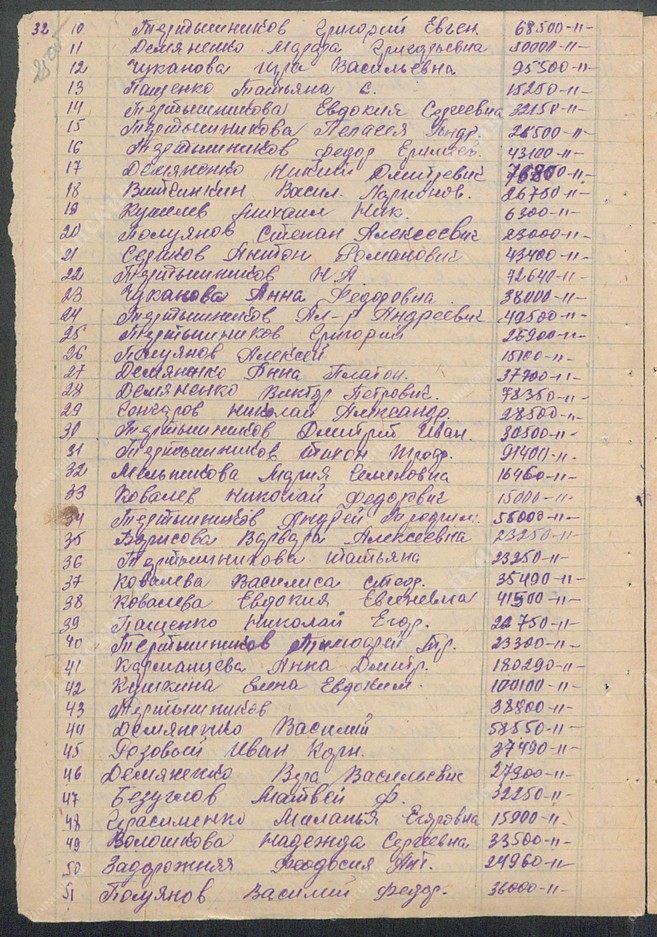 32 10 Тертышников Григорий Евген. 68500-11-
11 Демяненко Марфа Григорьевна 10000-11-
12 Чуканова Вера Васильевна 95500-11-
13 Пащенко Татьяна С. 15250-11-
14 Тертышникова Евдокия Сергеевна 32150-11-
15 Тертышникова Пелагея Андр. 26500-11-
16 Тертышников Федор 43100-11-
17 Демяненко Дмитревич
18 Васил. Ларионов. 26750-11-
19 Михаил Ник. 6300-11-
20 Полуянов Степан Алексеевич 23000-11-
21 Антон Романович 43400-11-
22 Тертышников Н А 72640-11-
23 Чуканова Анна Федоровна 38000-11-
24 Тертышников Ал-р Андреевич 49500-11-
25 Тертышников Григорий 25900-11-
26 Полуянов Алексей 15100-11-
27 Демяненко Анна Платон. 37700-11-
28 Демяненко Виктор Петрович. 78350-11-
29 Гончаров Николай Александр. 28500-11-
30 Тертышников Дмитрий Иван. 30500-11-
31 Тертышников Тихон Троф. 91400-11-
32 Мельникова Мария Семеновна 16460-11-
33 Ковалев Николай Федорович 15000-11-
34 Тертышников Андрей 55000-11-
35 Борисова Варвара Алексеевна 23250-11-
36 Тертышникова Татьяна 23250-11-
37 Ковалева Василиса Стеф. 35490-11-
38 Ковалева Евдокия Евгеневна 41500-11-
39 Пащенко Николай Егор. 22750-11-
40 Тертышников Тимофей Гр. 23300-11-
41 Карманцева Анна Дмитр. 180290-11-
42 Кушкина Елена Евдоким. 100100-11-
43 Тертышников 38800-11-
44 Демяненко Василий 58550-11-
45 Розовый Иван Корн. 37490-11-
46 Демяненко Вера Васильевич 27900-11-
47 Безуглов Матвей Ф. 32250-11-
48 Герасименко Маланья Егоровна 15900-11-
49 Волошкова Надежда Сергеевна 33500-11-
50 Задорожняя Феодосия Ант. 24960-11-
51 Полуянов Василий Федор. 36000-11-